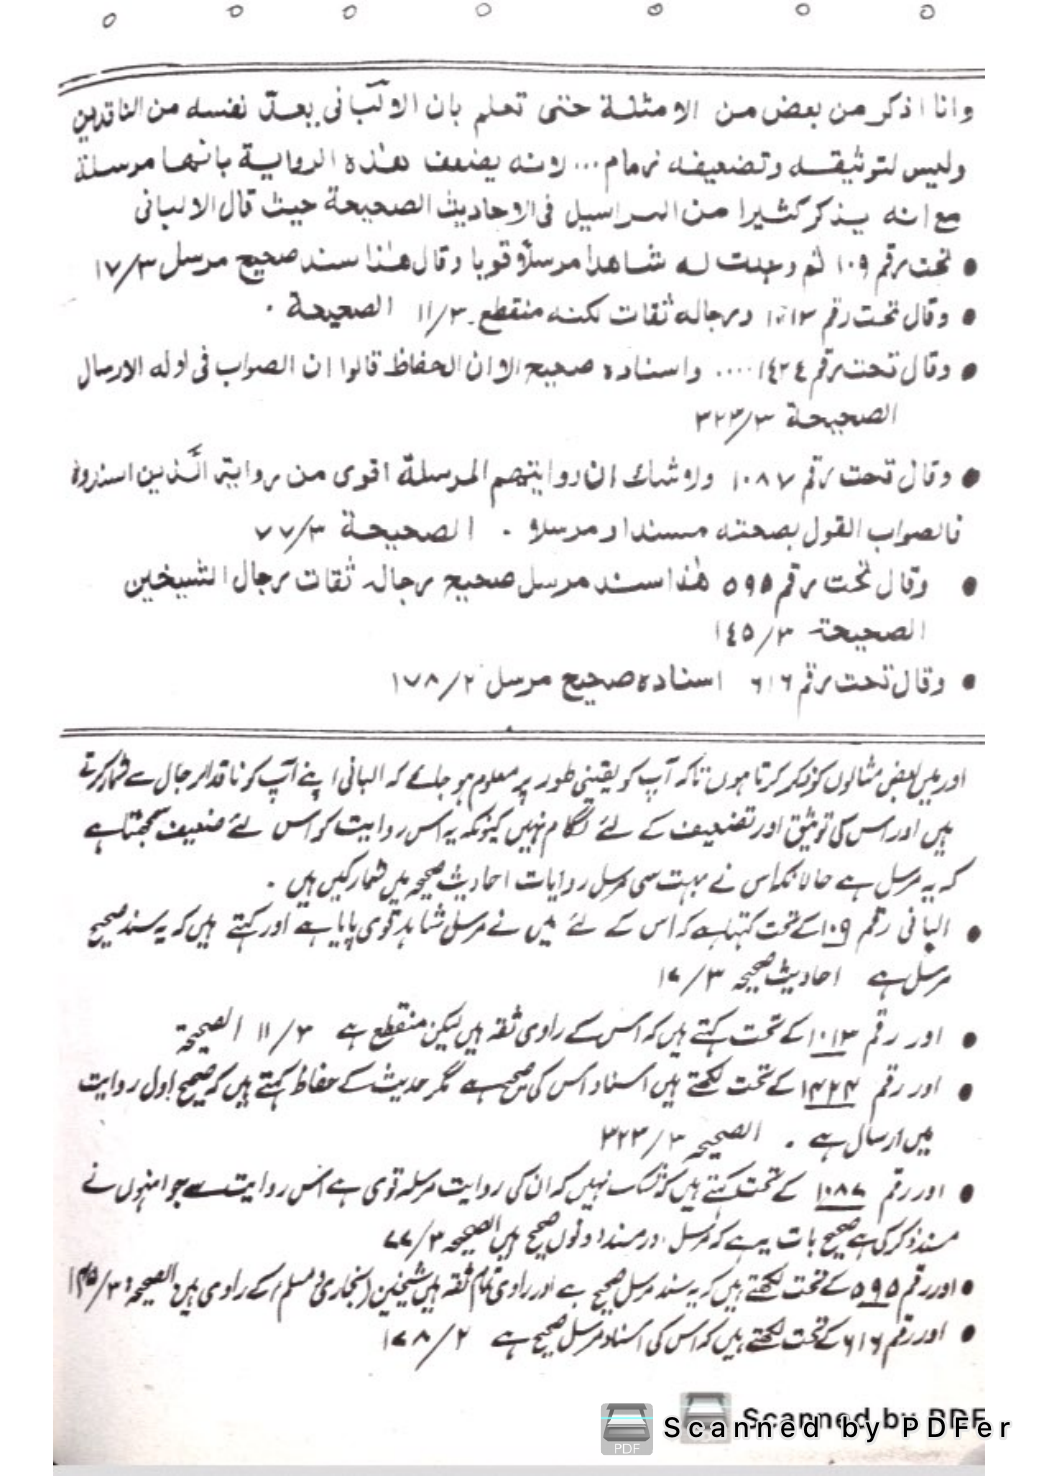 وانا اذكر من بعض من الامثلة حتى تعلم بان الالبانى يعد نفسه من الناقدين
وليس لتوثيقه وتضعيفه زمام... لانه يضعف هذه الرواية بانها مرسلة
مع انه يذكر كثيرا من المراسيل فى الاحاديث الصحيحة حيث قال الالبانى
● تحت رقم ١٠٩ ثم وجدت له شاهدا مرسلا قويا وقال هذا سند صحيح مرسل ١٧/٣
● وقال تحت رقم ١٠١٣ ورجاله ثقات لكنه منقطع. ١١/٣ الصحيحة .
● وقال تحت رقم ١٤٢٤.... واسناده صحيح الا ان الحفاظ قالوا ان الصواب فى اوله الارسال
الصحيحة ٣٢٣/٣
● وقال تحت رقم ١٠٨٧ ولا شك ان روايتهم المرسلة اقوى من رواية الذين اسندوه
فالصواب القول بصحته مسندا ومرسلا . الصحيحة ٧٧/٣
● وقال تحت رقم ٥٩٥ هذا سند مرسل صحيح رجاله ثقات رجال الشيخين
الصحيحة ١٤٥/٣
● وقال تحت رقم ٦١٦ اسناده صحيح مرسل ١٧٨/٢
اور میں بعض مثالوں کو ذکر کرتا ہوں تاکہ آپ کو یقینی طور پر معلوم ہو جائے کہ البانی اپنے آپ کو ناقد الرجال سے شمار کرتے
ہیں اور اس کی توثیق اور تضعیف کے لئے لگام نہیں کیونکہ یہ اس روایت کو اس لئے ضعیف سمجھتا ہے
کہ یہ مرسل ہے حالانکہ اس نے بہت سی مرسل روایات احادیث صحیحہ میں شمار کیں ہیں .
● البانی رقم ١٠٩ کے تحت کہتا ہے کہ اس کے لئے میں نے مرسل شاہد قوی پایا ہے اور کہتے ہیں کہ یہ سند صحیح
مرسل ہے احادیث صحیحہ ١٧/٣
● اور رقم ١٠١٣ کے تحت کہتے ہیں کہ اس کے راوی ثقہ ہیں لیکن منقطع ہے ١١/٣ الصحیحۃ
● اور رقم ١٤٢٤ کے تحت لکھتے ہیں اسناد اس کی صحیح ہے مگر حدیث کے حفاظ کہتے ہیں کہ صحیح اول روایت
میں ارسال ہے . الصحیحہ ٣٢٣/٣
● اور رقم ١٠٨٧ کے تحت کہتے ہیں کہ شک نہیں کہ ان کی روایت مرسلہ قوی ہے اس روایت سے جو انہوں نے
مسند ذکر کی ہے صحیح بات یہ ہے کہ مرسل اور مسند دونوں صحیح ہیں الصحیحہ ٧٧/٣
● اور رقم ٥٩٥ کے تحت لکھتے ہیں کہ یہ سند مرسل صحیح ہے اور راوی تمام ثقہ ہیں شیخین (بخاری و مسلم) کے راوی ہیں الصحیحۃ ١٤٥/٣
● اور رقم ٦١٦ کے تحت لکھتے ہیں کہ اس کی اسناد مرسل صحیح ہے ١٧٨/٢
Scanned by PDFer